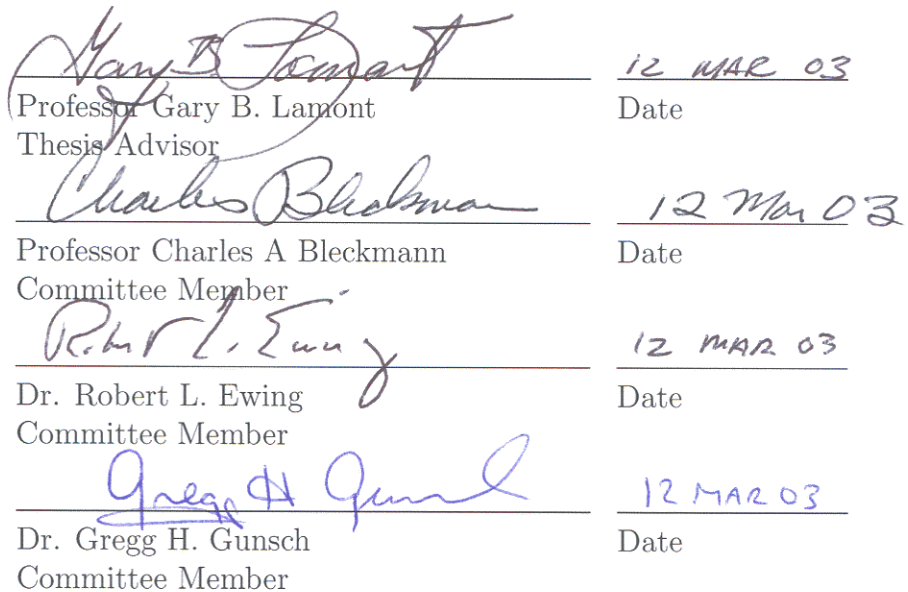 Gary B Lamont 12 MAR 03
Professor Gary B. Lamont Date
Thesis Advisor
Charles Bleckmann 12 Mar 03
Professor Charles A Bleckmann Date
Committee Member
Robert L. Ewing 12 MAR 03
Dr. Robert L. Ewing Date
Committee Member
Gregg H Gunsch 12 MAR 03
Dr. Gregg H. Gunsch Date
Committee Member